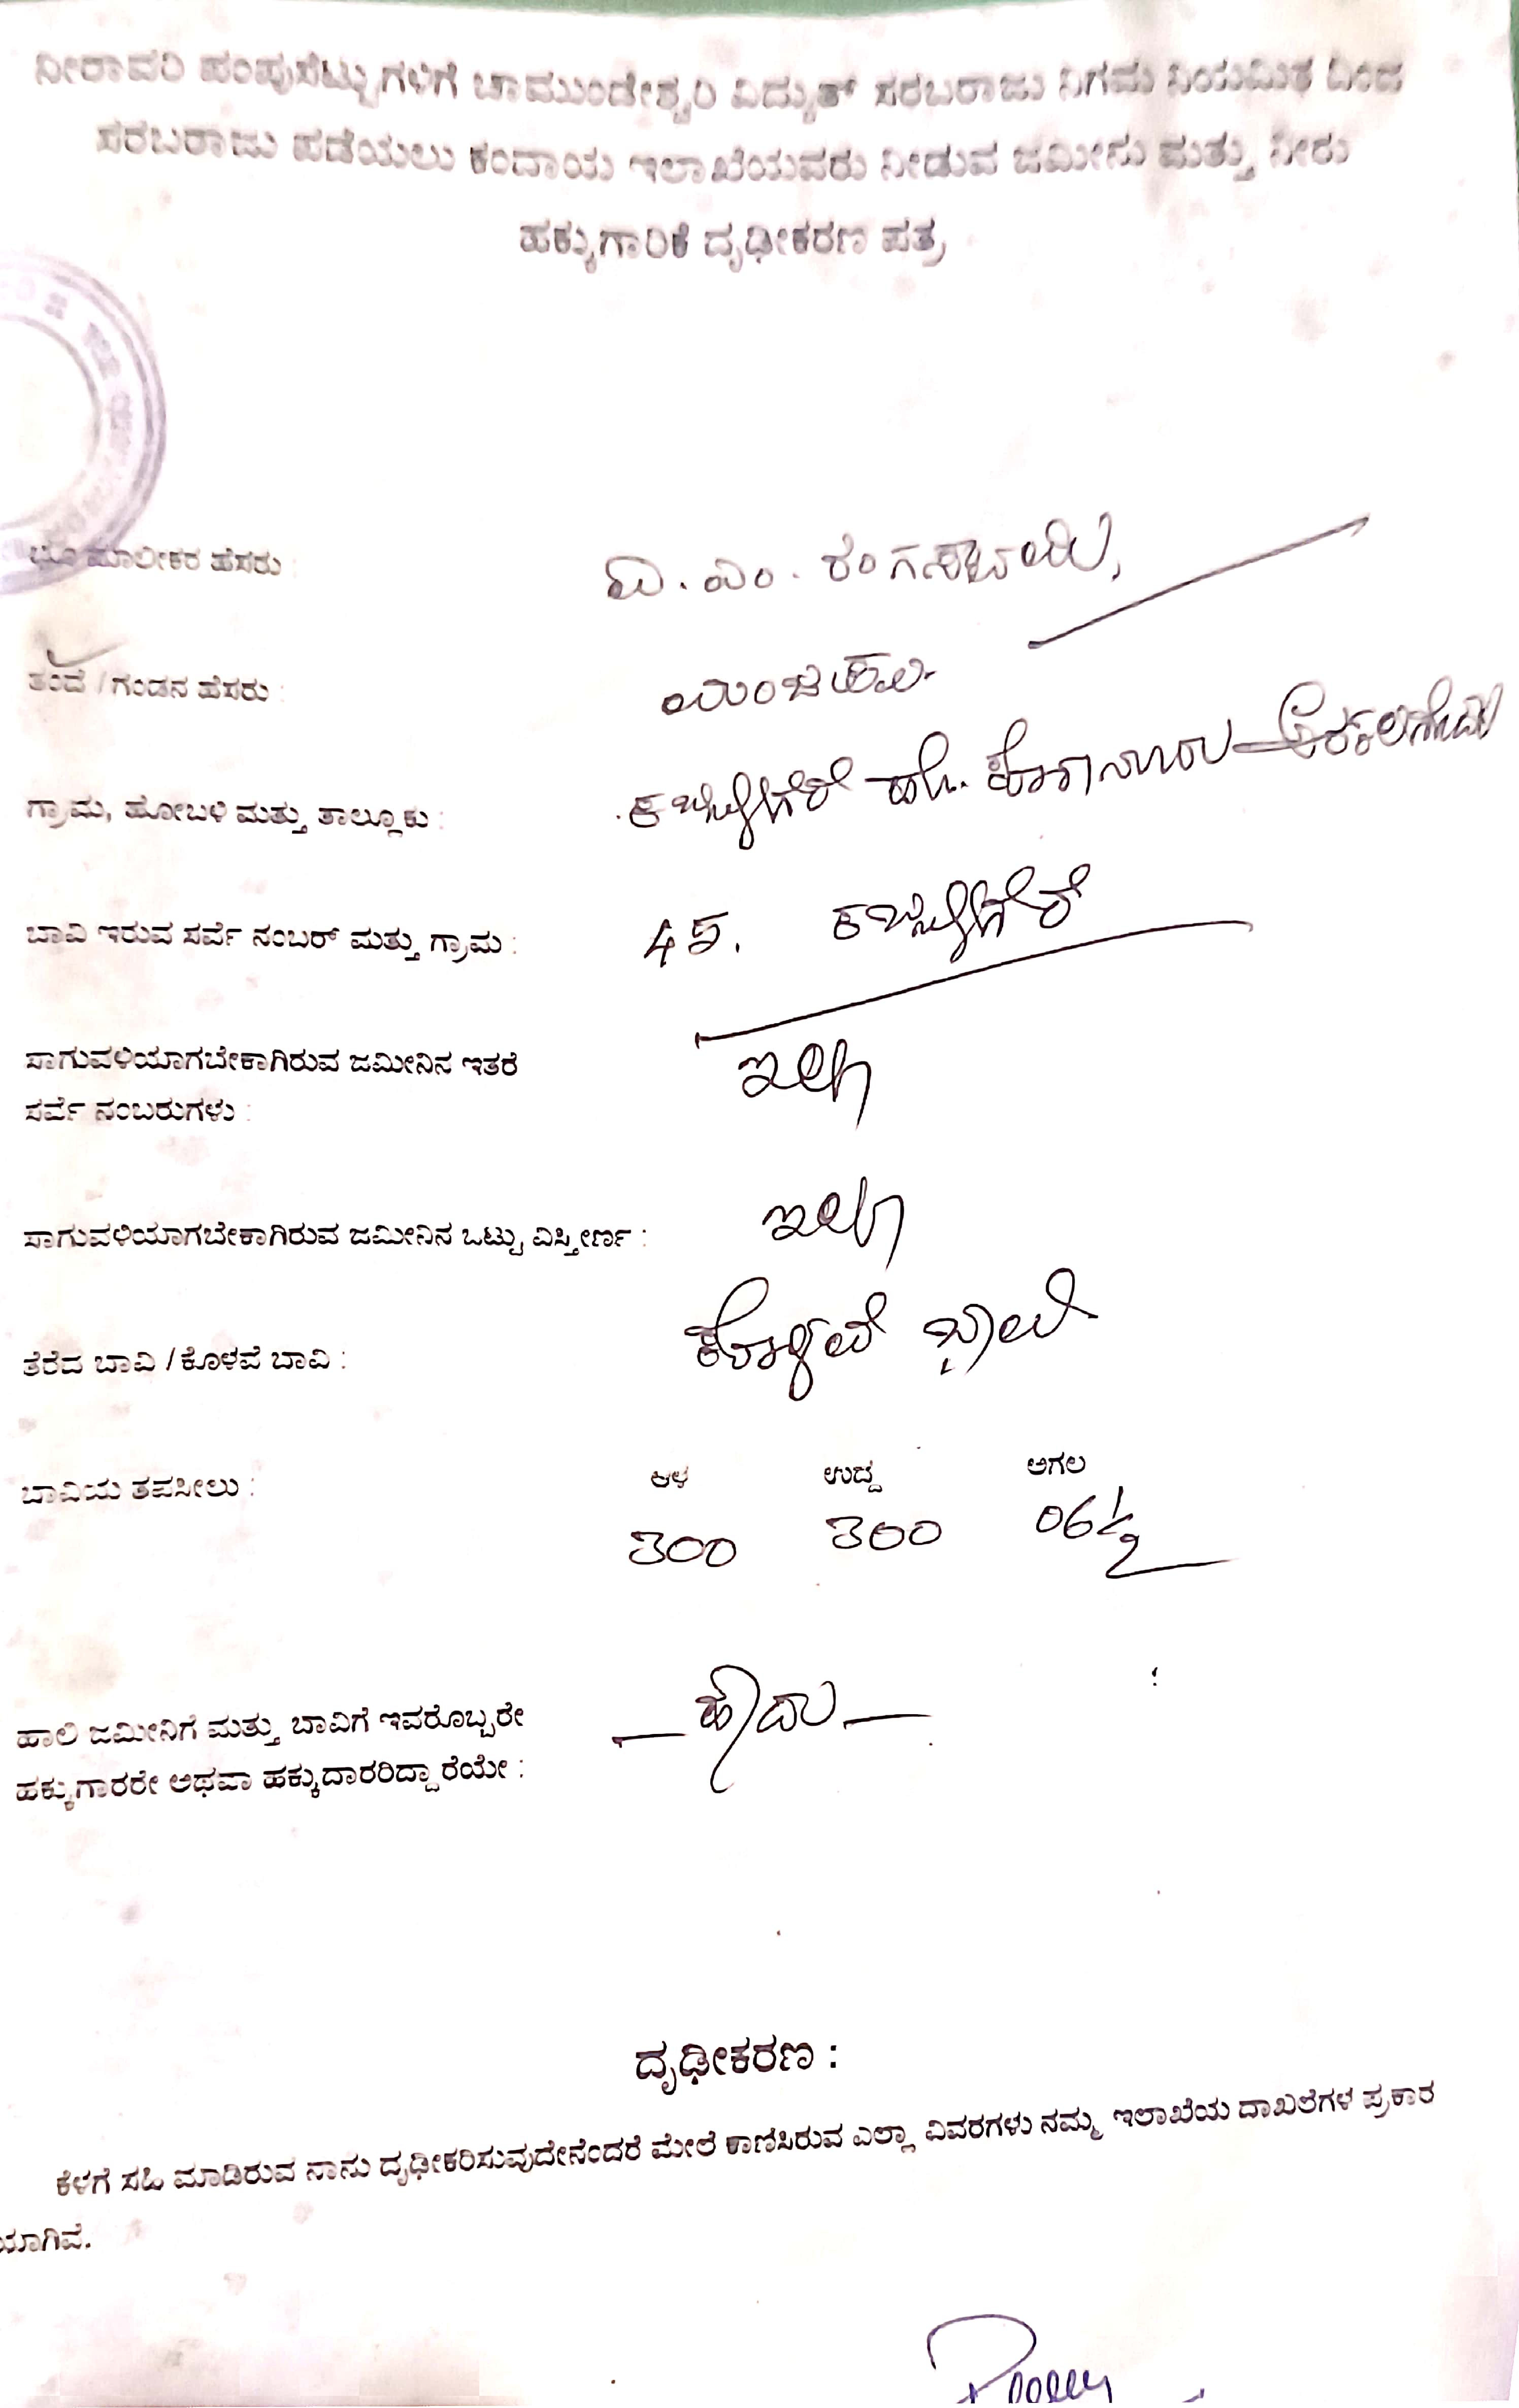 ನೀರಾವರಿ ಪಂಪುಸೆಟ್ಟುಗಳಿಗೆ ಚಾಮುಂಡೇಶ್ವರಿ ವಿದ್ಯುತ್ ಸರಬರಾಜು ನಿಗಮ ನಿಯಮಿತ ದಿಂದ
ಸರಬರಾಜು ಪಡೆಯಲು ಕಂದಾಯ ಇಲಾಖೆಯವರು ನೀಡುವ ಜಮೀನು ಮತ್ತು ನೀರು
ಹಕ್ಕುಗಾರಿಕೆ ದೃಢೀಕರಣ ಪತ್ರ
ಭೂ ಮಾಲೀಕರ ಹೆಸರು :
ತಂದೆ / ಗಂಡನ ಹೆಸರು :
ಗ್ರಾಮ, ಹೋಬಳಿ ಮತ್ತು ತಾಲ್ಲೂಕು :
ಬಾವಿ ಇರುವ ಸರ್ವೆ ನಂಬರ್ ಮತ್ತು ಗ್ರಾಮ : 45.
ಸಾಗುವಳಿಯಾಗಬೇಕಾಗಿರುವ ಜಮೀನಿನ ಇತರೆ ಇಲ್ಲ
ಸರ್ವೆ ನಂಬರುಗಳು :
ಸಾಗುವಳಿಯಾಗಬೇಕಾಗಿರುವ ಜಮೀನಿನ ಒಟ್ಟು ವಿಸ್ತೀರ್ಣ : ಇಲ್ಲ
ತೆರೆದ ಬಾವಿ / ಕೊಳವೆ ಬಾವಿ : ಕೊಳವೆ ಭಾವಿ
ಬಾವಿಯ ತಪಸೀಲು : ಆಳ ಉದ್ದ ಅಗಲ
300 300 06½
ಹಾಲಿ ಜಮೀನಿಗೆ ಮತ್ತು ಬಾವಿಗೆ ಇವರೊಬ್ಬರೇ — ಹೌದು —
ಹಕ್ಕುಗಾರರೇ ಅಥವಾ ಹಕ್ಕುದಾರರಿದ್ದಾರೆಯೇ :
ದೃಢೀಕರಣ :
ಕೆಳಗೆ ಸಹಿ ಮಾಡಿರುವ ನಾನು ದೃಢೀಕರಿಸುವುದೇನೆಂದರೆ ಮೇಲೆ ಕಾಣಿಸಿರುವ ಎಲ್ಲಾ ವಿವರಗಳು ನಮ್ಮ ಇಲಾಖೆಯ ದಾಖಲೆಗಳ ಪ್ರಕಾರ
ಯಾಗಿವೆ.